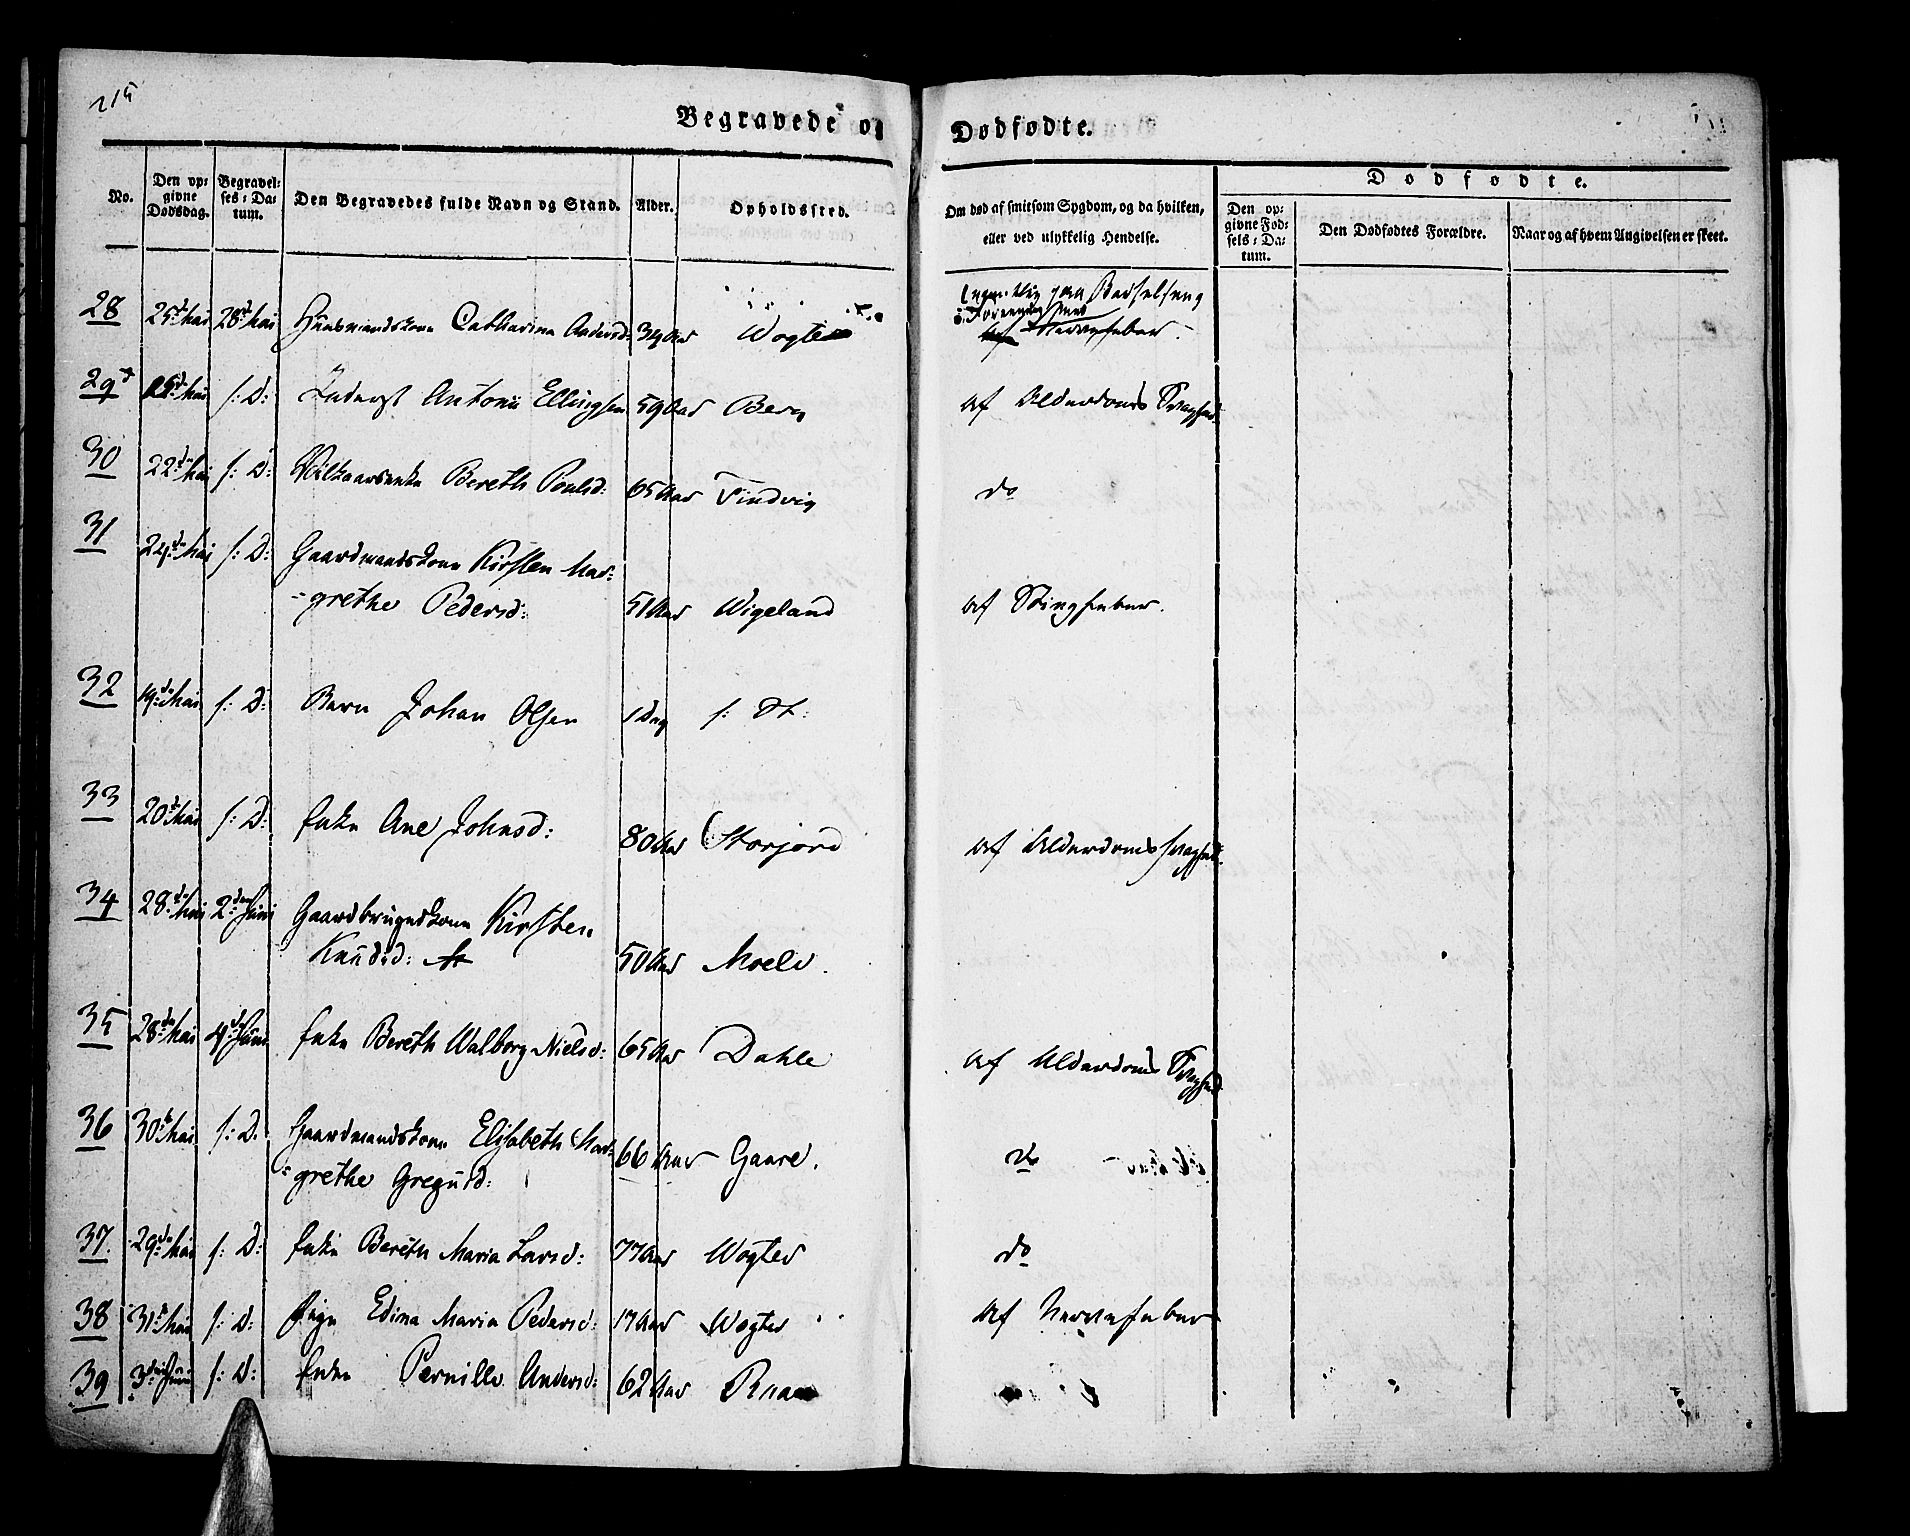 215
Begravede og Dødfødte.
No. Den opgivne Dødsdag. Begravelses-Datum. Den Begravedes fulde Navn og Stand. Alder. Opholdssted. Om død af smitsom Sygdom, og da hvilken, eller ved ulykkelig Hendelse. Dødfødte.
Den opgivne Fødsels-Datum. Den Dødfødtes Forældre. Naar og af hvem Angivelsen er skeet.
28 25d Mai 28d Mai Huusmandskone Catharina Andersd: 34 Aar Wogter paa Barselseng
Nervefeber.
29 25d Mai s: D: Inderst Antoni Ellingsen 59 Aar Berg af Alderdoms Svaghed
30 22d Mai s: D: Vilkaarsenke Bereth Poulsd: 65 Aar Findvig do
31 24de Mai s: D: Gaardmandskone Kirsten Mar=
=grethe Pedersd: 51 Aar Wigeland af Stingfeber.
32 19de Mai s: D: Barn Johan Olsen 1 Dag s: St:
33 20d Mai s: D: Enke Ane Johnsd: 80 Aar Storjord af Alderdomssvaghed.
34 28de Mai 2den Juni Gaardbrugerskone Kirsten
Knudsd: 50 Aar Moelv.
35 28de Mai 4de Juni Enke Bereth Walborg Nielsd: 65 Aar Dahle af Alderdoms Svaghed
36 30te Mai s: D: Gaardmandskone Elisabeth Mar=
=grethe Gregusd: 66 Aar Gaare. do
37. 29de Mai s: D: Enke Bereth Maria Larsd: 77 Aar Wogter do
38 31te Mai s: D: Pige Edina Maria Pedersd: 17 Aar Wogter af Nervefeber
39 3die Juni s: D: Enke Pernille Andersd: 62 Aar